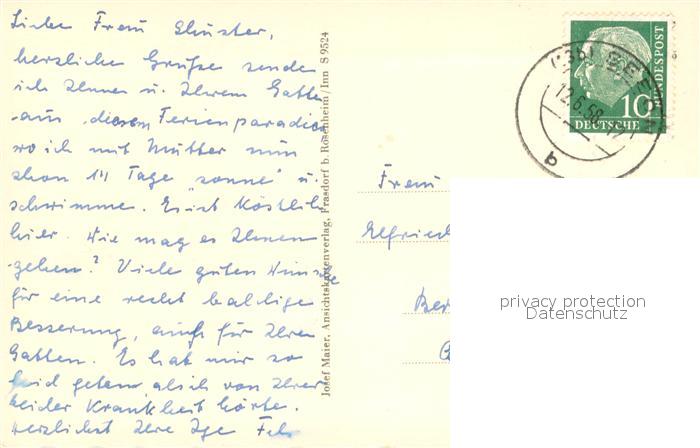 Liebe Frau Shuster,
herzliche Grüße sende
ich Ihnen u. Ihrem Gatten
aus diesem Ferienparadies
wo ich mit Mutter nun
schon 14 Tage "sonne" u.
schwimme. Es ist köstlich
hier. Wie mag es Ihnen
gehen? Viele guten Wünsche
für eine recht baldige
Besserung, auch für Ihren
Gatten. Es hat mir so
leid getan, als ich von Ihrer
beider Krankheit hörte.
Herzlichst Ihre Ilge
Josef Maier, Ansichtskartenverlag, Frasdorf b. Rosenheim/Inn S 9524
(13b) SEE
12.6.58
a
10
DEUTSCHE
BUNDESPOST
Frau
Elfried
Ber
privacy protection
Datenschutz